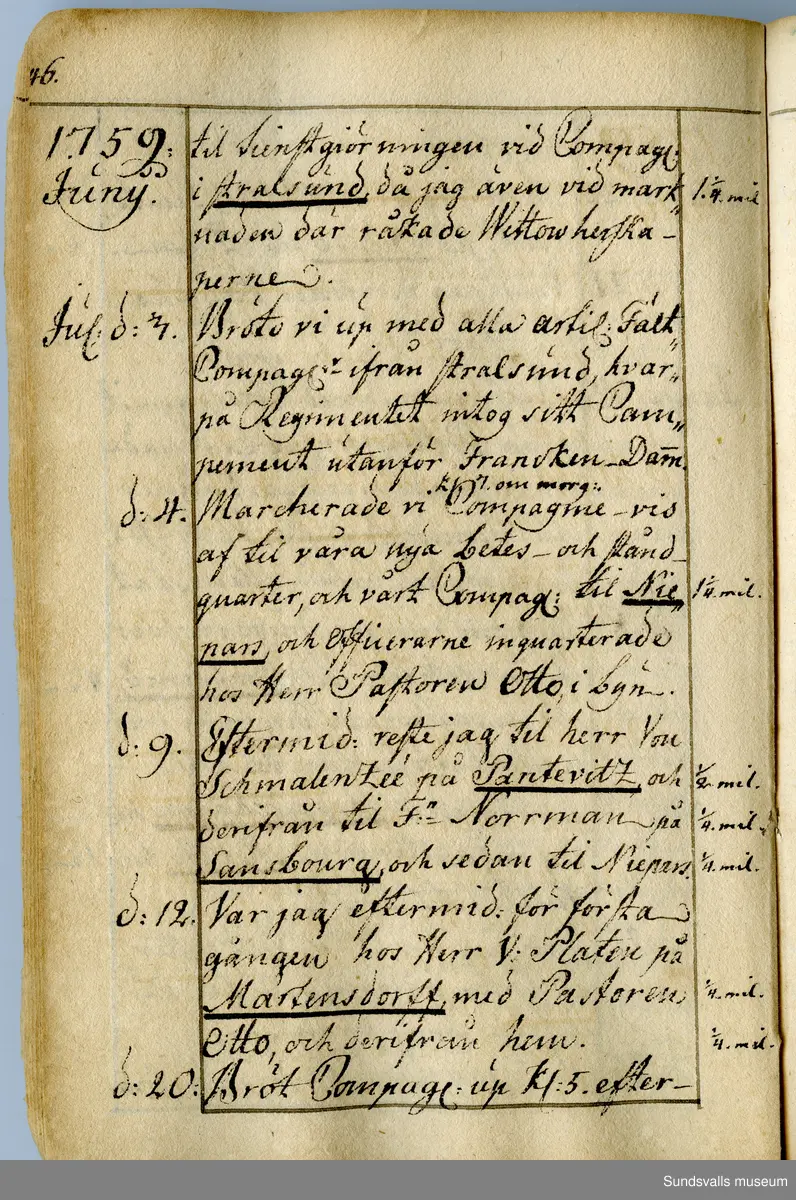 46.
1759: til tienstgiörningen vid Compag:
Juny. i Stralsund, då jag även vid mark„ 1.¼. mil
naden där råkade Wittow herska-
perne.
Jul: d: 3. Bröto vi up med alla artil: Fält„
Compag:r ifrån Stralsund, hvar„
på Regimentet intog sitt Cam„
pement utanför Francken-Dam̄.
kl. 7. om morg:
d: 4. Marcherade vi Compagnie-vis
af til våra nya betes- och stånd-
quarter, och vårt Compag: til Nie„ 1¼. mil.
pars, och officerarne inquarterade
hos Herr Pastoren Otto, i byn.
d: 9. Eftermid: reste jag til herr Von
Schmalenzeé på Pantevitz, och ½ mil.
derifrån til F:n Norrman på ¼. mil.
Sansbourg, och sedan til Niepars. ¼. mil.
d: 12. Var jag eftermid: för första
gången hos Herr V: Platen på
Martensdorff, med Pastoren ¼. mil.
Otto, och derifrån hem. ¼. mil.
d: 20: Bröt Compag: up kl: 5. efter-
Sundsvalls museum